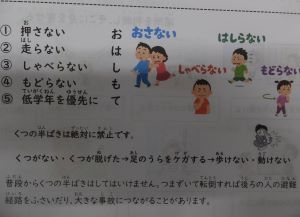 ① 押さない お
② 走らない は
③ しゃべらない し
④ もどらない も
⑤ 低学年を優先に て
おさない
はしらない
しゃべらない
もどらない
くつの半ばきは絶対に禁止です。
くつがない・くつが脱げた→足のうらをケガする→歩けない・動けない
普段からくつの半ばきはしてはいけません。つまずいて転倒すれば後ろの人の避難
経路をふさいだり、大きな事故につながることがあります。